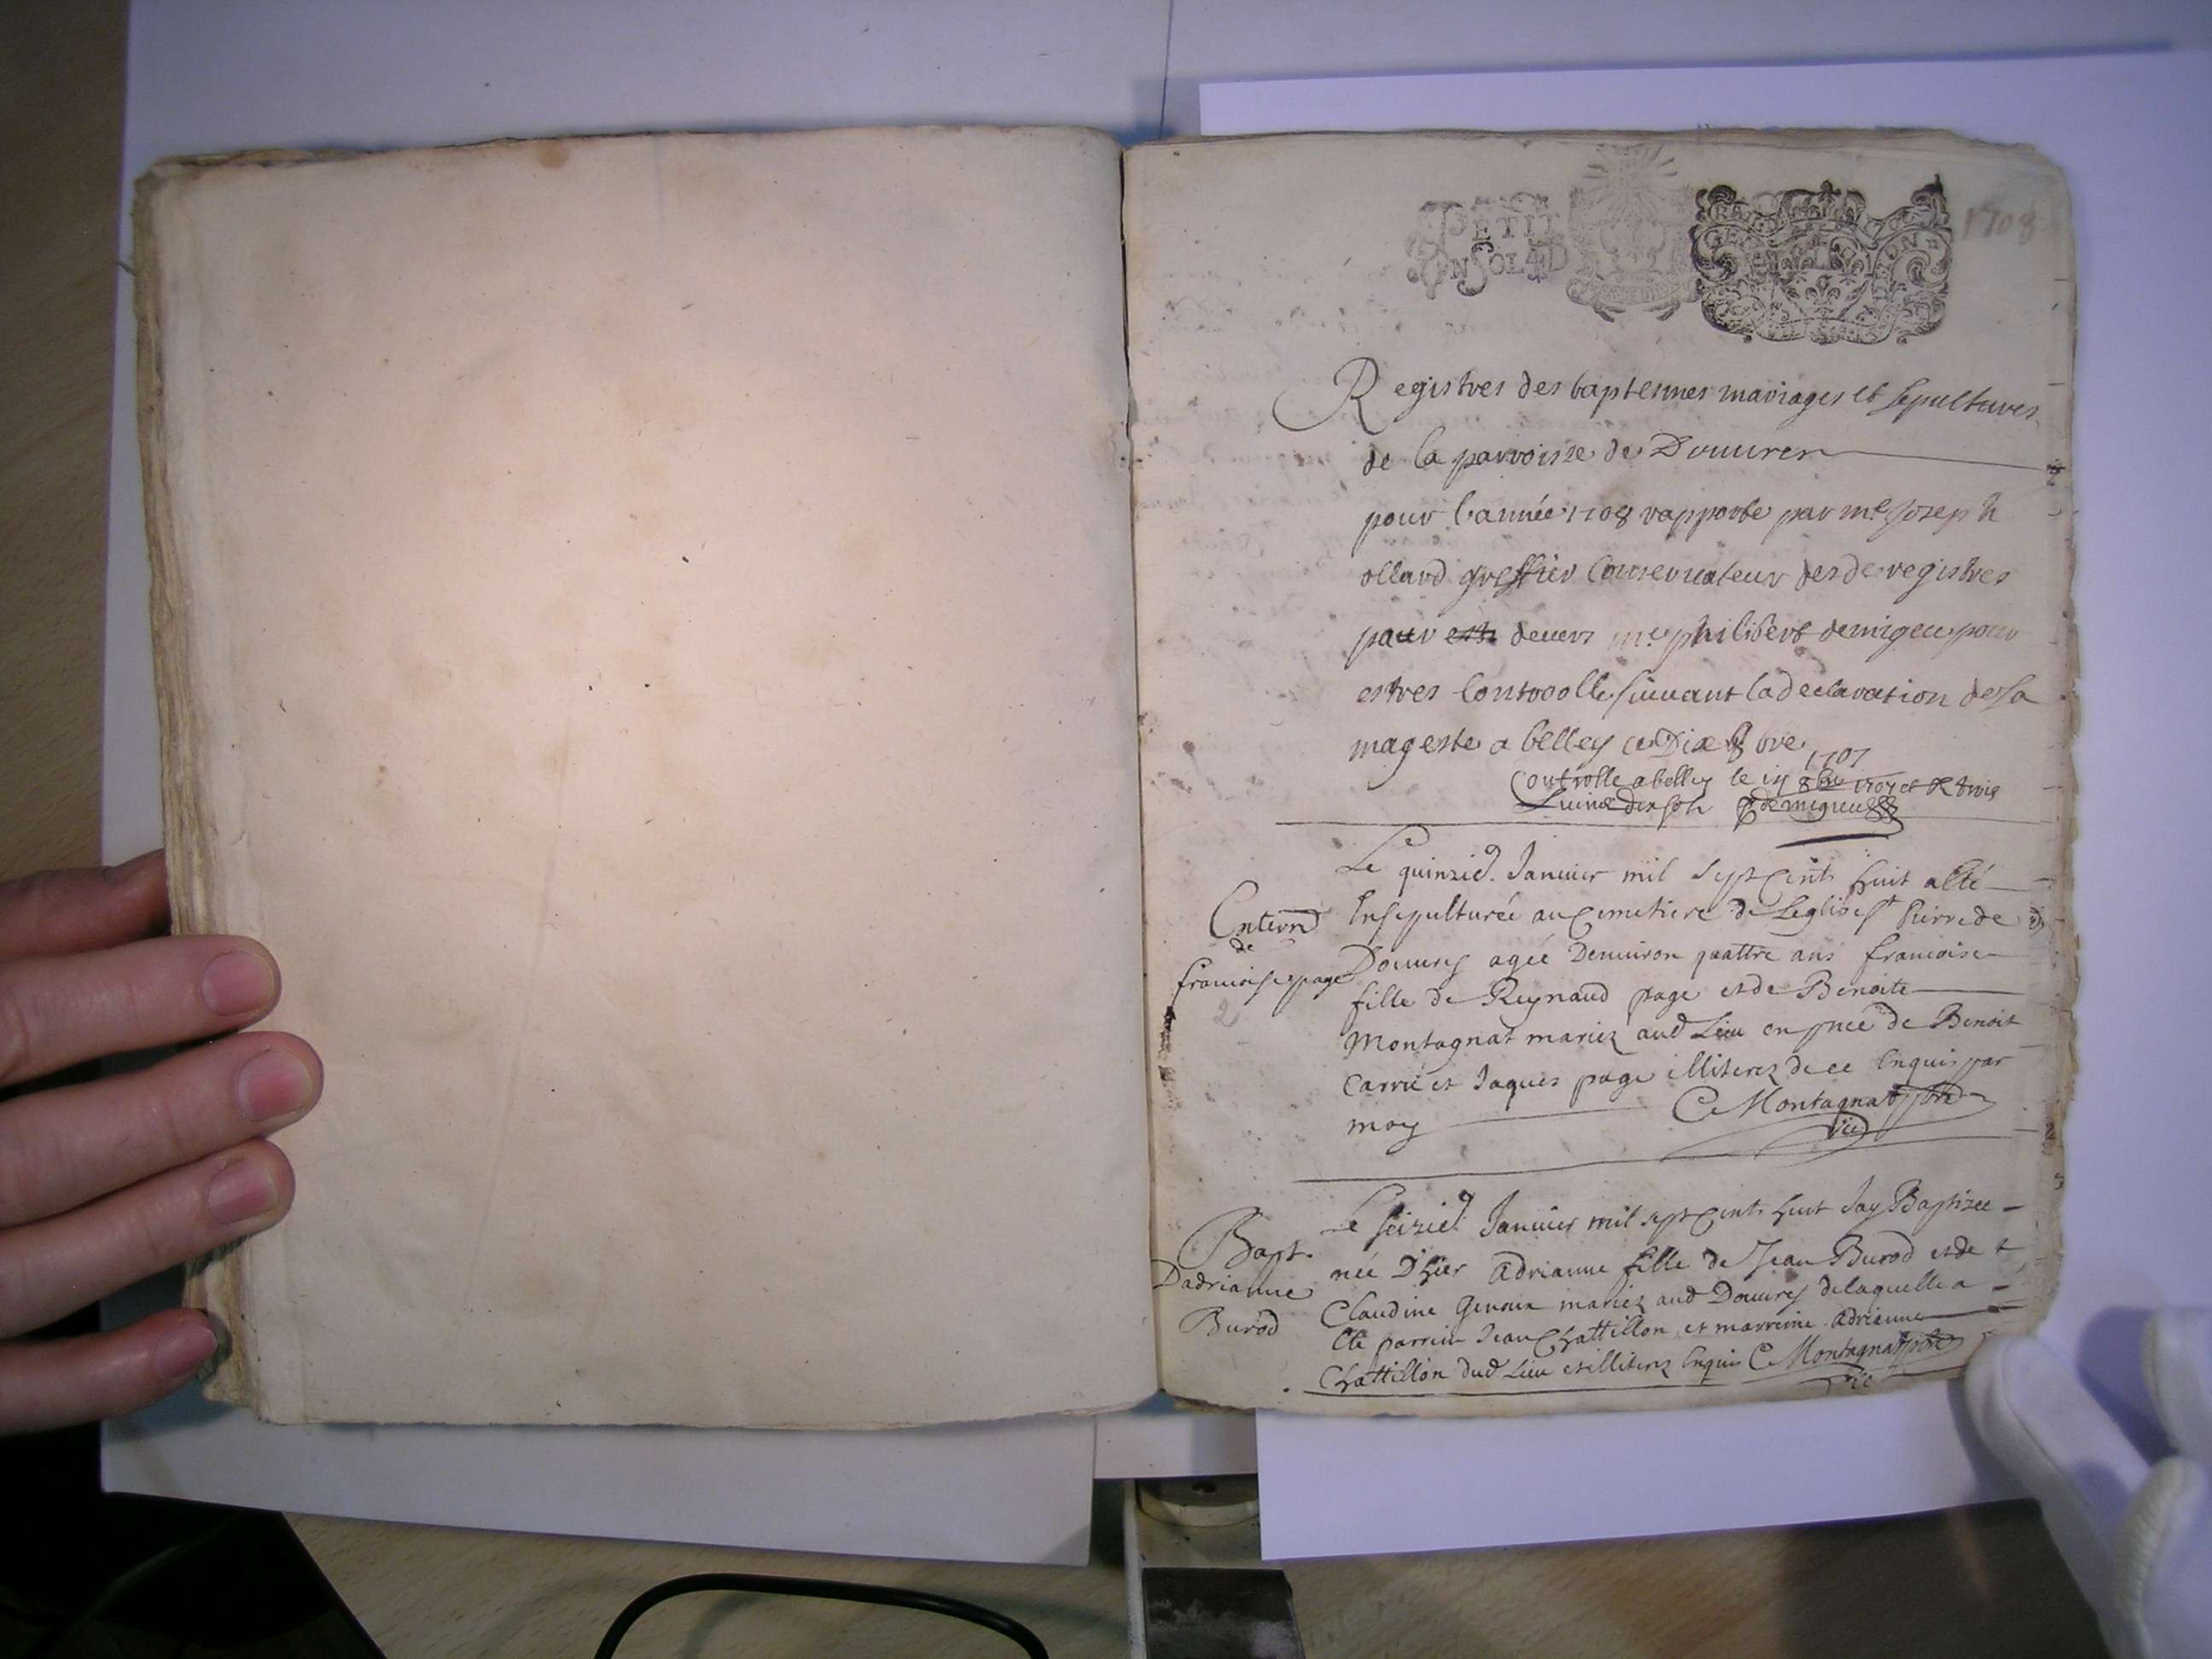 PETIT
UN SOL 4D
1708
Registres des baptesmes mariages et sepultures
de la parroisse de Douures
pour l'année 1708 rapporte par me Joseph
ollard greffier Conservateur desd registres
pour devers me philibert demigeu pour
estres Controolle suiuant la declaration de sa
mageste a belley ce Dix 8bre
1707
Controlle a belley le 8bre 1707 et R trois
demigieu
Le quinzie. Januier mil Sept Cents huit a esté
Enterrd
de
francoise page
2
Ensepulturée au Cemetiere de Leglise st Pierre de
Douures agée Denuiron quattre ans francoise
fille de Reynaud page et de Benoite
Montagnat mariez aud Lieu en pnce de Benoit
Carrié et Jaques page illiterez de ce Enquis par
moy
C Montagnat ptre
vic
Bapt.
Dadrianne
Burod
Le seizie. Januier mil sept Cents huit Jay Baptizee
née D'hier Adrianne fille de Jean Burod et de
Claudine Genoux mariez aud Douures de laquelle a
Eté parrein Jean Chattillon et marreine Adrienne
Chattillon dud Lieu et illiterez Enquis C Montagnat ptre
vic